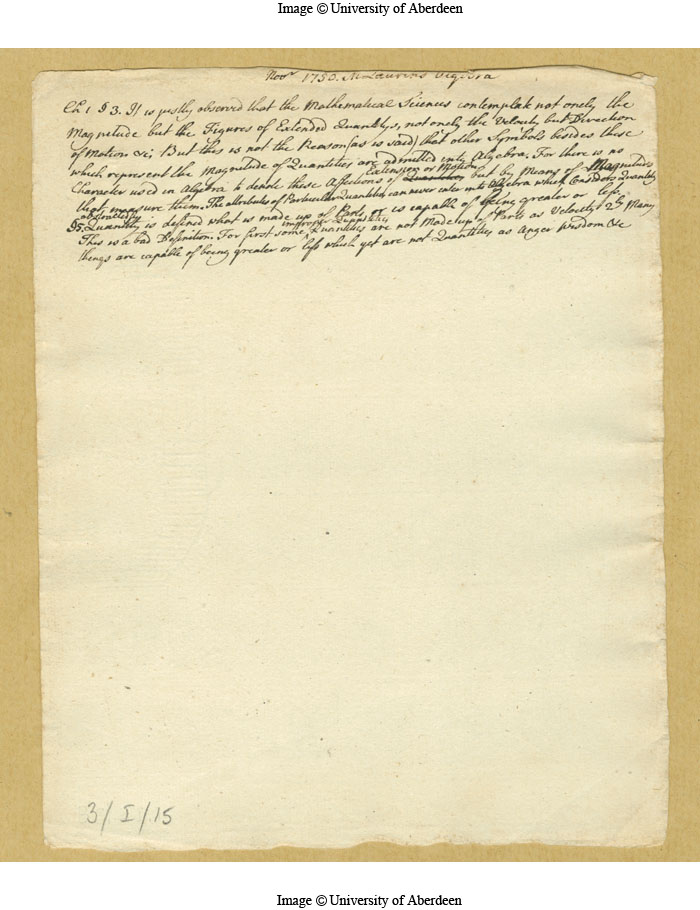 Image © University of Aberdeen
Novr 1750. McLaurins Algebra
Ch 1 § 3. It is justly observed that the Mathematical Sciences contemplate not onely the
Magnitude but the Figures of Extended Quantitys, not onely the Velocity but Direction
of Motion &c; But this is not the Reason (as is said) that other Symbols besides these
which represent the Magnitude of Quantities are admitted into Algebra. For there is no
Character used in Algebra to denote these Affections of Extension or Motion but by Means of Magnitudes
that measure them. The attributes of Particular Quantities can never enter into Algebra which Considers Quantity
abstractedly.
§5. Quantity is defined what is made up of Parts or is capable of being greater or less.
This is a bad Definition. For first some improper Quantities are not Made up of Parts as Velocity 2ly Many
things are capable of being greater or less which yet are not Quantities as Anger Wisdom &c
3/I/15
Image © University of Aberdeen